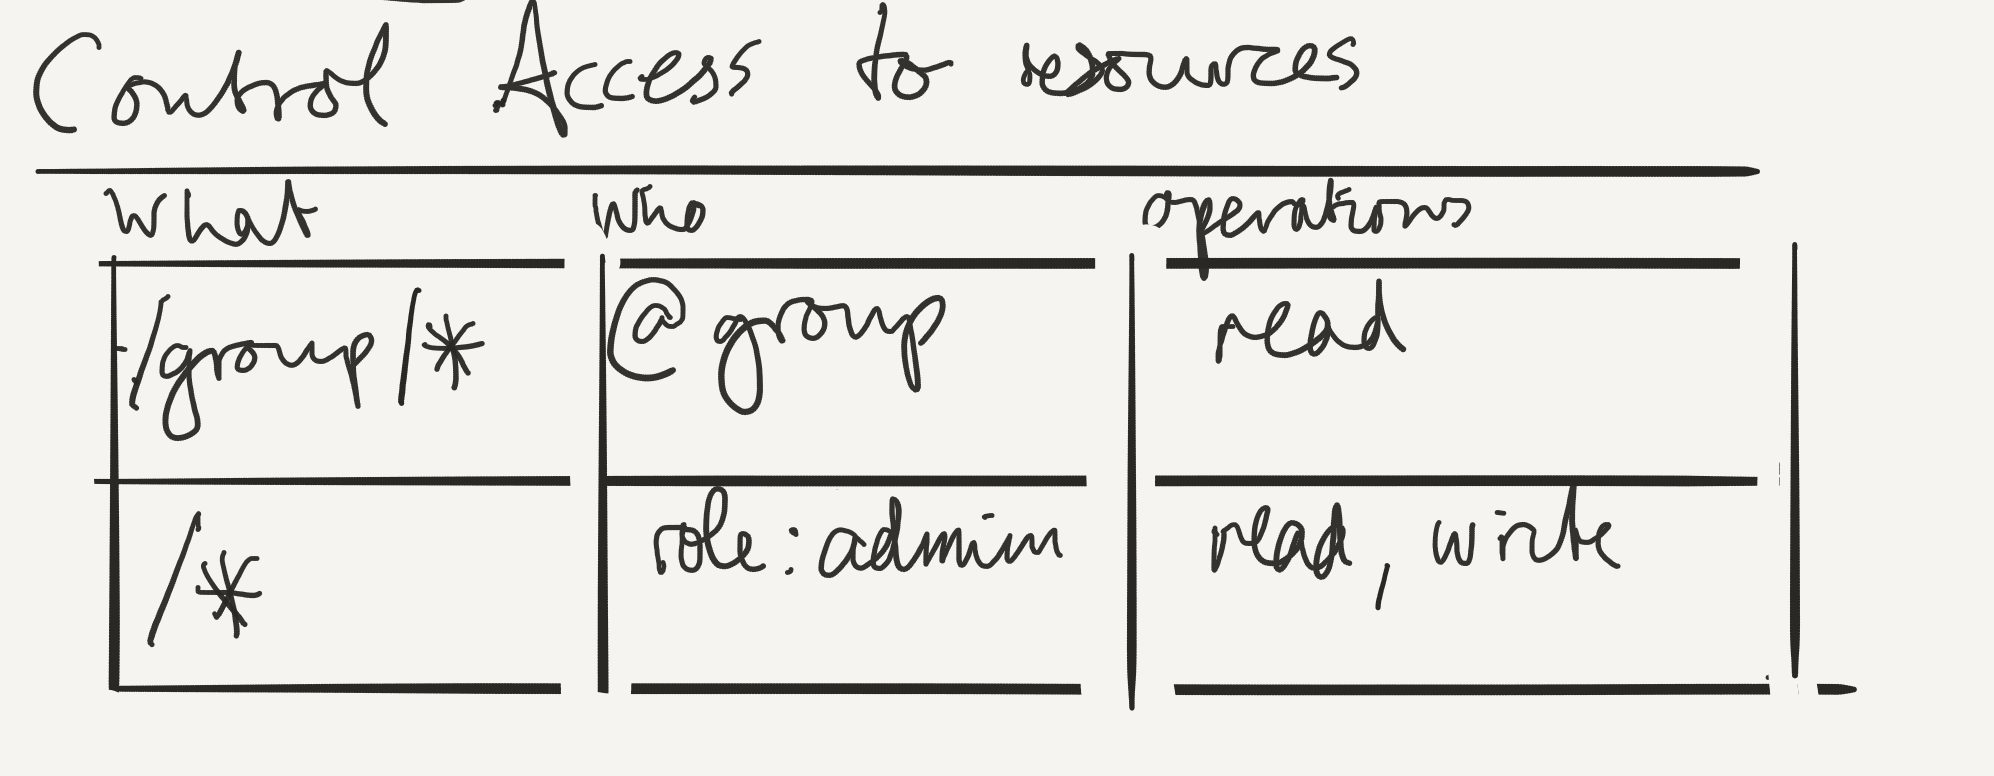 Control Access to resources
what who operations
/group/* @group read
/* role:admin read, write